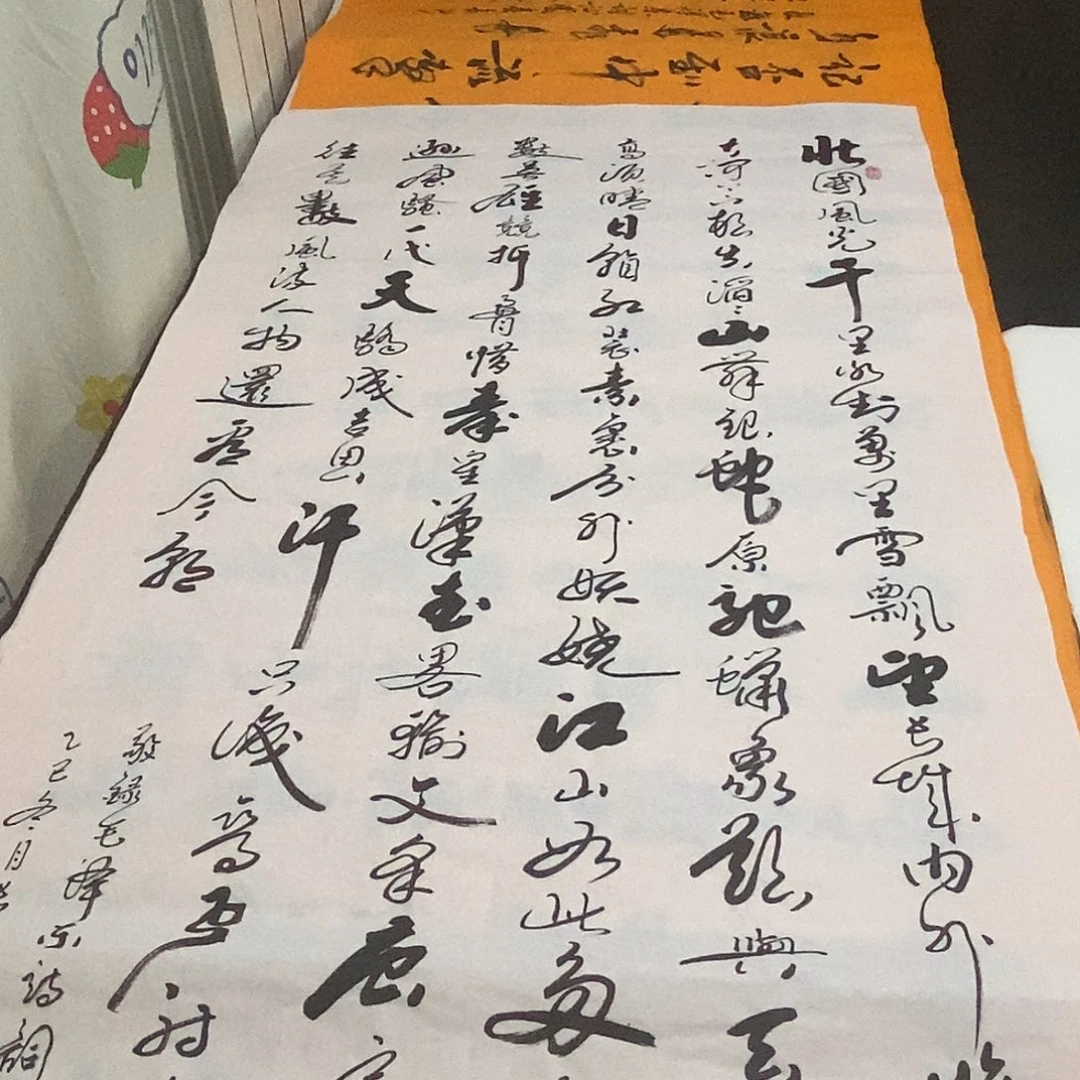 北國風光千里冰封萬里雪飄望長城内外
大河上下頓失滔〻山舞銀蛇原馳蠟象欲與天
高須晴日看红装素裹分外妖嬈江山如此多
數英雄競折腰惜秦皇漢武畧輸文采唐
遜風騷一代天驕成吉思汗只識彎弓射
往矣數風流人物還看今朝
敬録毛澤東詩詞
乙巳冬月